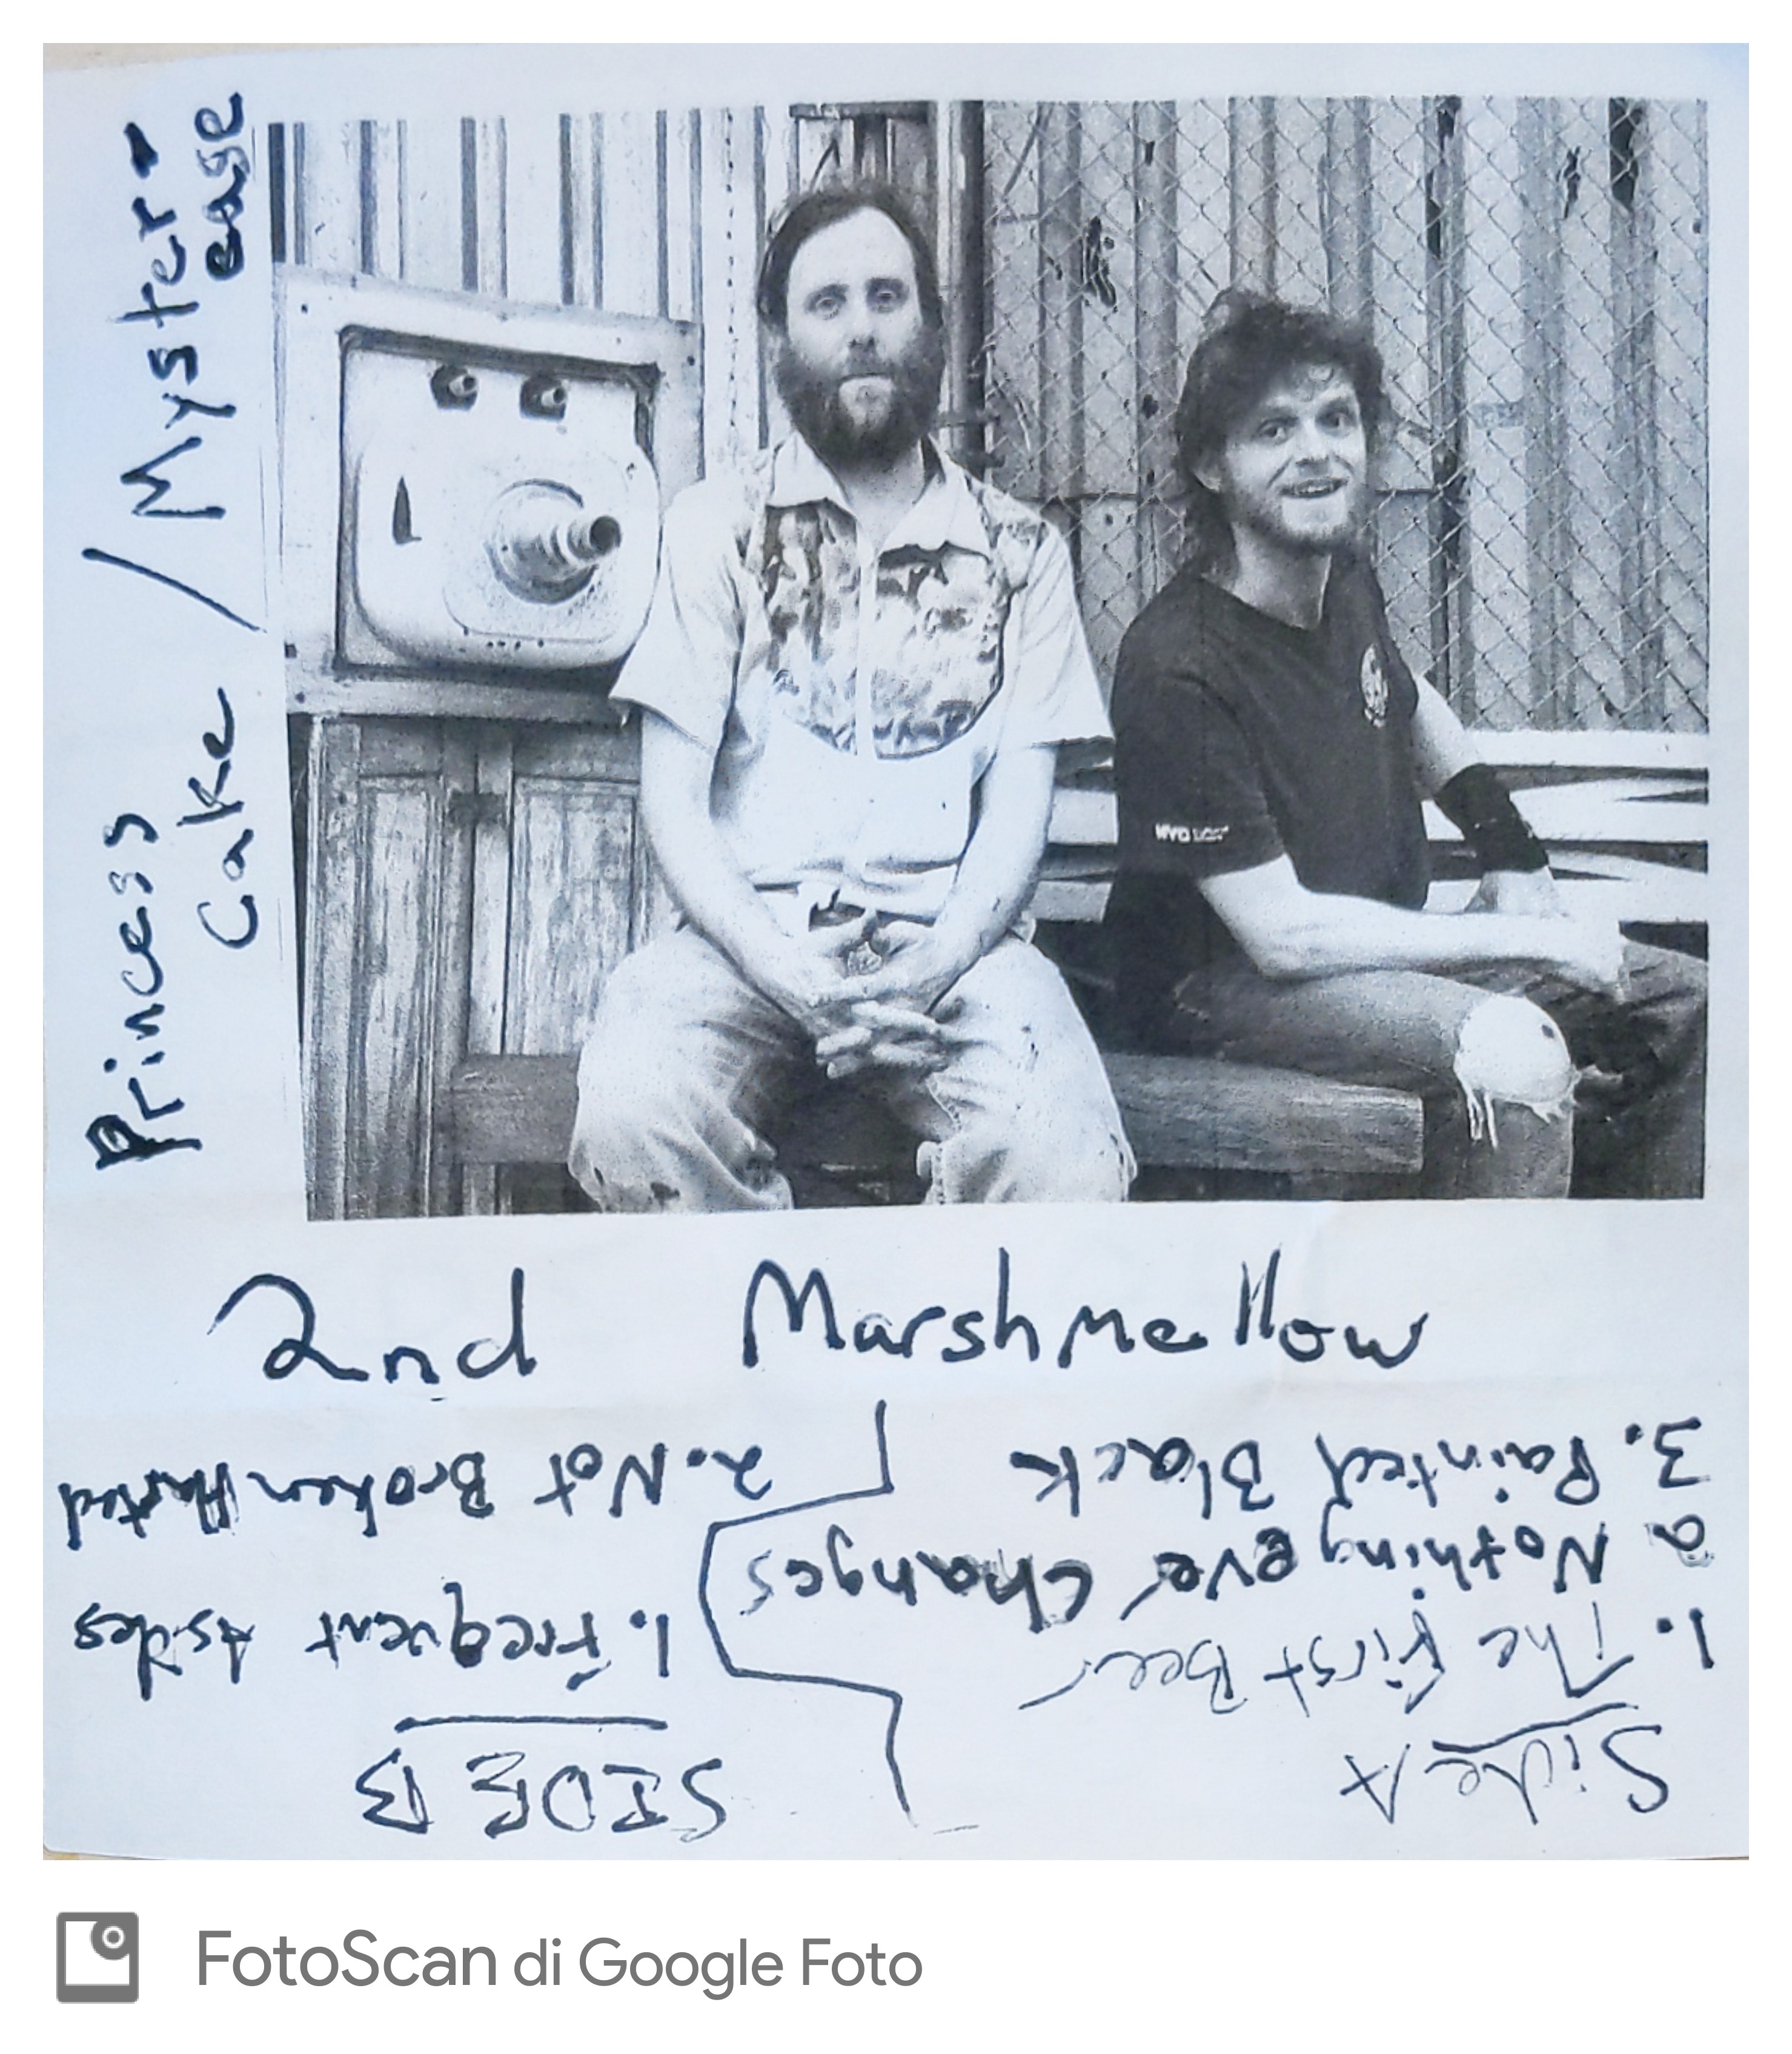 Princess
Cake / Myster-
ease
2nd Marshmellow
Side A
1. The First Beer
2 Nothing ever changes
3. Painted Black
SIDE B
1. Frequent Asides
2. Not Broken Harted
FotoScan di Google Foto